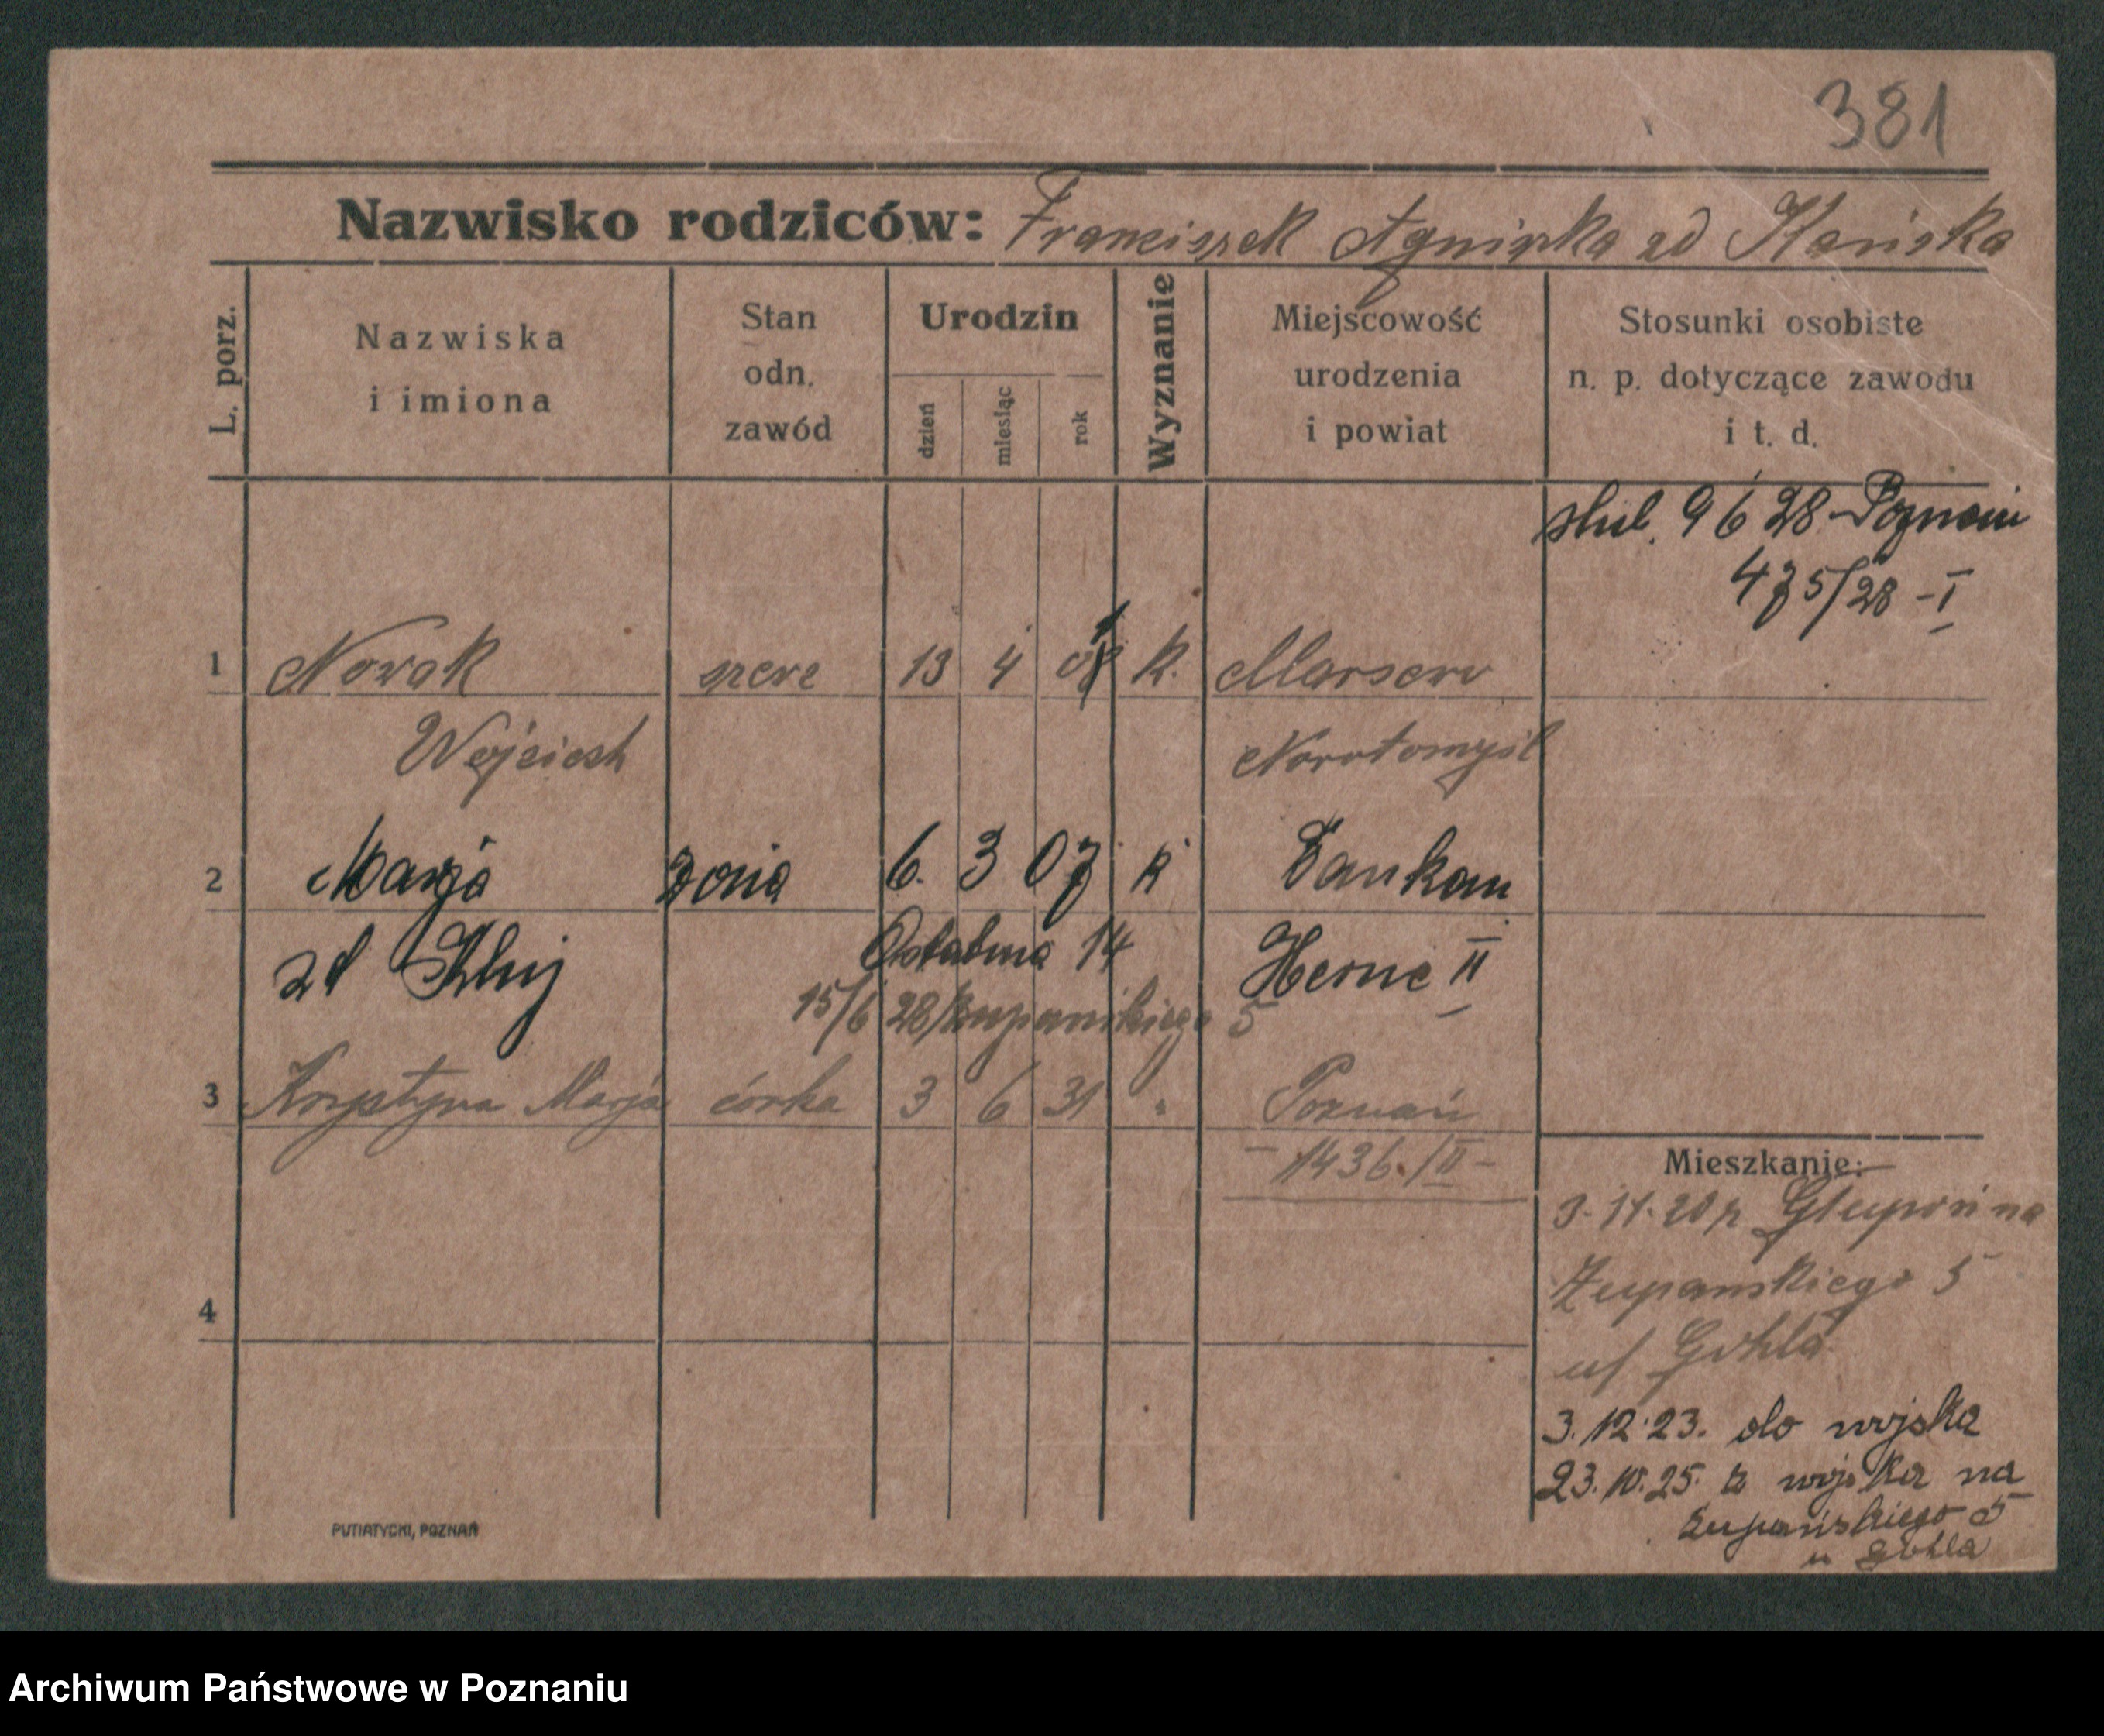 381
Nazwisko rodziców: Franciszek Agnieszka zd Kańska
L. porz.
Nazwiska
i imiona
Stan
odn.
zawód
Urodzin
dzień
miesiąc
rok
Wyznanie
Miejscowość
urodzenia
i powiat
Stosunki osobiste
n. p. dotyczące zawodu
i t. d.
ślub. 9 6 28 Poznań
475/28 - I
1 Nowak szewc 13 4 K.
Wojciech Nowotomyśl
2 Marja żona 6. 3 07 K
zd Kluj 14 Herne II
15/6 28 Żupańskiego 5
3 Krystyna Marja córka 3 6 31 " Poznań
- 1436./II -
Mieszkanie:
Głuponi na
Żupańskiego 5
u/ Gohla
4
3.12.23. do wojska
23.10.25. z wojska na
Żupańskiego 5
u Gohla
PUTIATYCKI, POZNAŃ
Archiwum Państwowe w Poznaniu